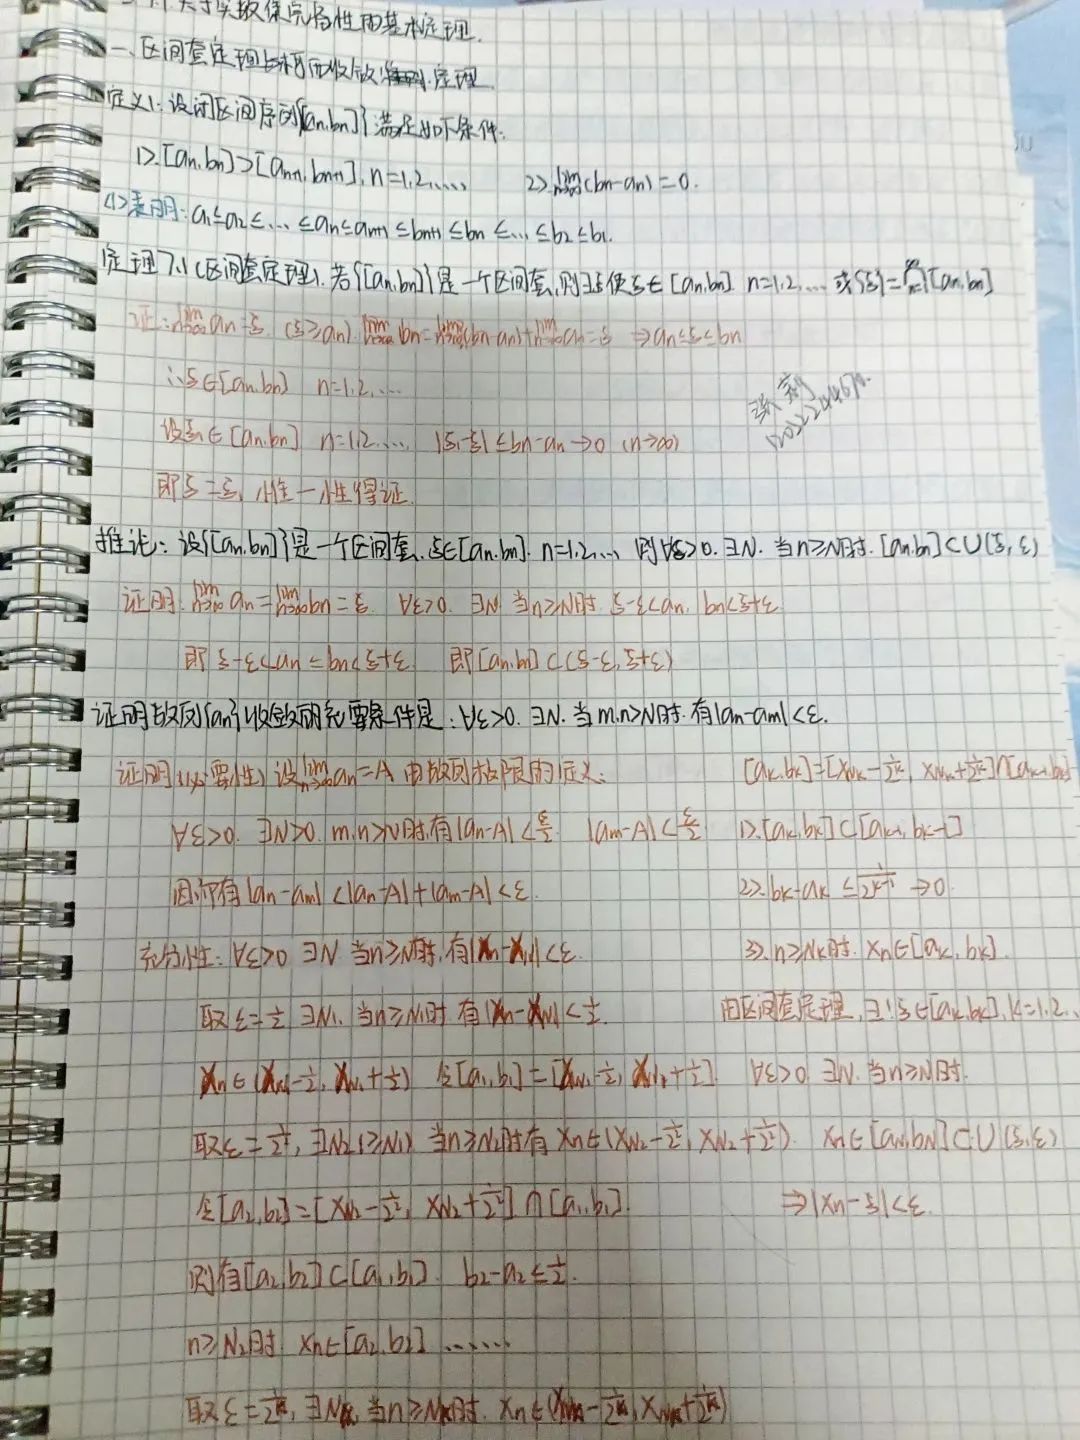 关于实数集完备性的基本定理.
一、区间套定理与柯西收敛定理
定义1: 设闭区间序列{[an,bn]}满足如下条件:
1>.[an,bn]⊃[an+1,bn+1], n=1,2,…… 2>.lim n→∞ (bn-an)=0.
(1)表明: a1≤a2≤…≤an≤an+1≤bn+1≤bn≤…≤b2≤b1.
定理7.1 (区间套定理). 若{[an,bn]}是一个区间套,则∃ξ使ξ∈[an,bn]. n=1,2,… 或{ξ}=∩[an,bn]
证: lim n→∞ an=ξ. (ξ≥an). lim n→∞ bn=lim n→∞(bn-an)+lim n→∞ an=ξ ⇒an≤ξ≤bn
∴ξ∈[an,bn] n=1,2,…
设ξ1∈[an,bn] n=1,2……, |ξ1-ξ|≤bn-an→0 (n→∞)
即ξ=ξ1, 唯一性得证.
推论: 设{[an,bn]}是一个区间套, ξ∈[an,bn]. n=1,2,… 则∀ε>0. ∃N. 当n≥N时. [an,bn]⊂U(ξ,ε)
证明: lim n→∞ an=lim n→∞ bn=ξ. ∀ε>0. ∃N 当n≥N时. ξ-ε<an, bn<ξ+ε
即 ξ-ε<an≤bn<ξ+ε. 即[an,bn]⊂(ξ-ε,ξ+ε)
证明数列{an}收敛的充要条件是: ∀ε>0. ∃N. 当m.n>N时. 有|an-am|<ε.
证明(必要性) 设lim n→∞ an=A 由数列极限的定义:
∀ε>0. ∃N>0. m,n>N时.有|an-A|<ε/2 |am-A|<ε/2
因而有|an-am|<|an-A|+|am-A|<ε.
充分性: ∀ε>0 ∃N 当n≥N时,有|xn-xN|<ε.
取ε=1/2 ∃N1. 当n≥N1时.有|xn-xN1|<1/2.
xn∈(xN1-1/2, xN1+1/2) 令[a1,b1]=[xN1-1/2, xN1+1/2].
取ε=1/2², ∃N2(≥N1) 当n≥N2时有 xn∈(xN2-1/2², xN2+1/2²).
令[a2,b2]=[xN2-1/2², xN2+1/2²]∩[a1,b1].
则有[a2,b2]⊂[a1,b1]. b2-a2≤1/2.
n≥N2时 xn∈[a2,b2] ……
取ε=1/2ᵏ, ∃Nk, 当n≥Nk时. xn∈(xNk-1/2ᵏ, xNk+1/2ᵏ)
[ak,bk]=[xNk-1/2ᵏ, xNk+1/2ᵏ]∩[ak-1,bk-1]
1>.[ak,bk]⊂[ak-1,bk-1]
2>.bk-ak≤1/2ᵏ⁻¹→0.
3>.n≥Nk时. xn∈[ak,bk].
由区间套定理, ∃!ξ∈[ak,bk], k=1,2,…
∀ε>0 ∃N. 当n≥N时.
xn∈[aN,bN]⊂U(ξ,ε)
⇒|xn-ξ|<ε.